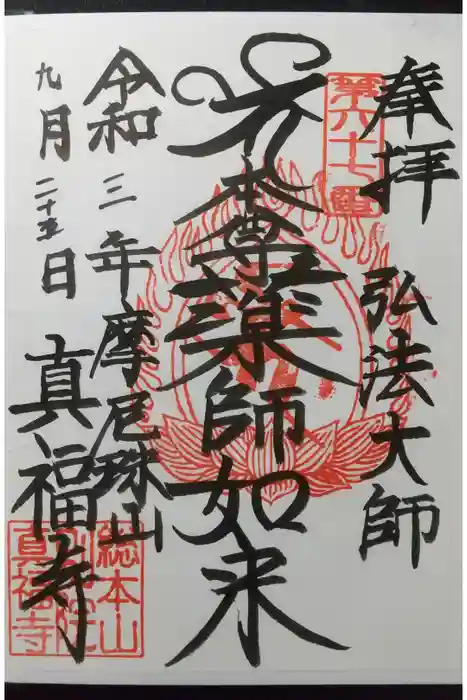 奉拝 弘法大師
第六十七番
本尊薬師如来
令和三年摩尼珠山
九月二十五日 真福寺
総本山
真福寺